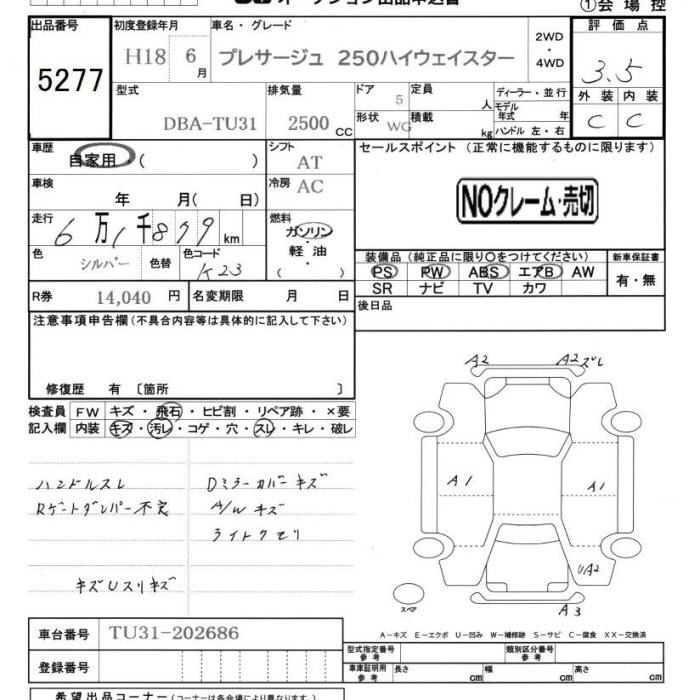 オークション出品申込書
①会場控
出品番号
5277
初度登録年月
H18 6月
車名・グレード
プレサージュ 250ハイウェイスター
2WD
・
4WD
評価点
3.5
外装 内装
C C
型式
DBA-TU31
排気量
2500 CC
ドア
5
定員
人
形状
WG
積載
kg
ディーラー・並行
モデル年式 年
ハンドル 左・右
車歴
自家用・( )
シフト
AT
車検
年 月( 日)
冷房
AC
走行
6万1千879km
燃料
ガソリン・
軽・油
( )
色
シルバー
色替
色コード
K23
R券 14,040 円
名変期限 月 日
セールスポイント (正常に機能するものに限ります)
NOクレーム・売切
装備品(純正品に限り○をつけてください)
PS PW ABS エアB AW
SR ナビ TV カワ
新車保証書
有・無
後日品
注意事項申告欄(不具合内容等は具体的に記入して下さい)
修復歴 有〔箇所 〕
検査員記入欄
FW キズ・飛石・ヒビ割・リペア跡・×要
内装 キズ・汚レ・コゲ・穴・スレ・キレ・破レ
ハンドルスレ
Rゲートダンパー不良
キズUスリキズ
Dミラーカバーキズ
A/Wキズ
ライトクモリ
A2
A2ズレ
A1
A1
UA2
A3
スペア
A−キズ E−エクボ U−凹み W−補修跡 S−サビ C−腐食 XX−交換済
車台番号 TU31-202686
登録番号
型式指定番号
参考
類別区分番号
参考
車庫証明用
参考
長さ cm
幅 cm
高さ cm
希望出品コーナー(コーナーは各会場により異なります)